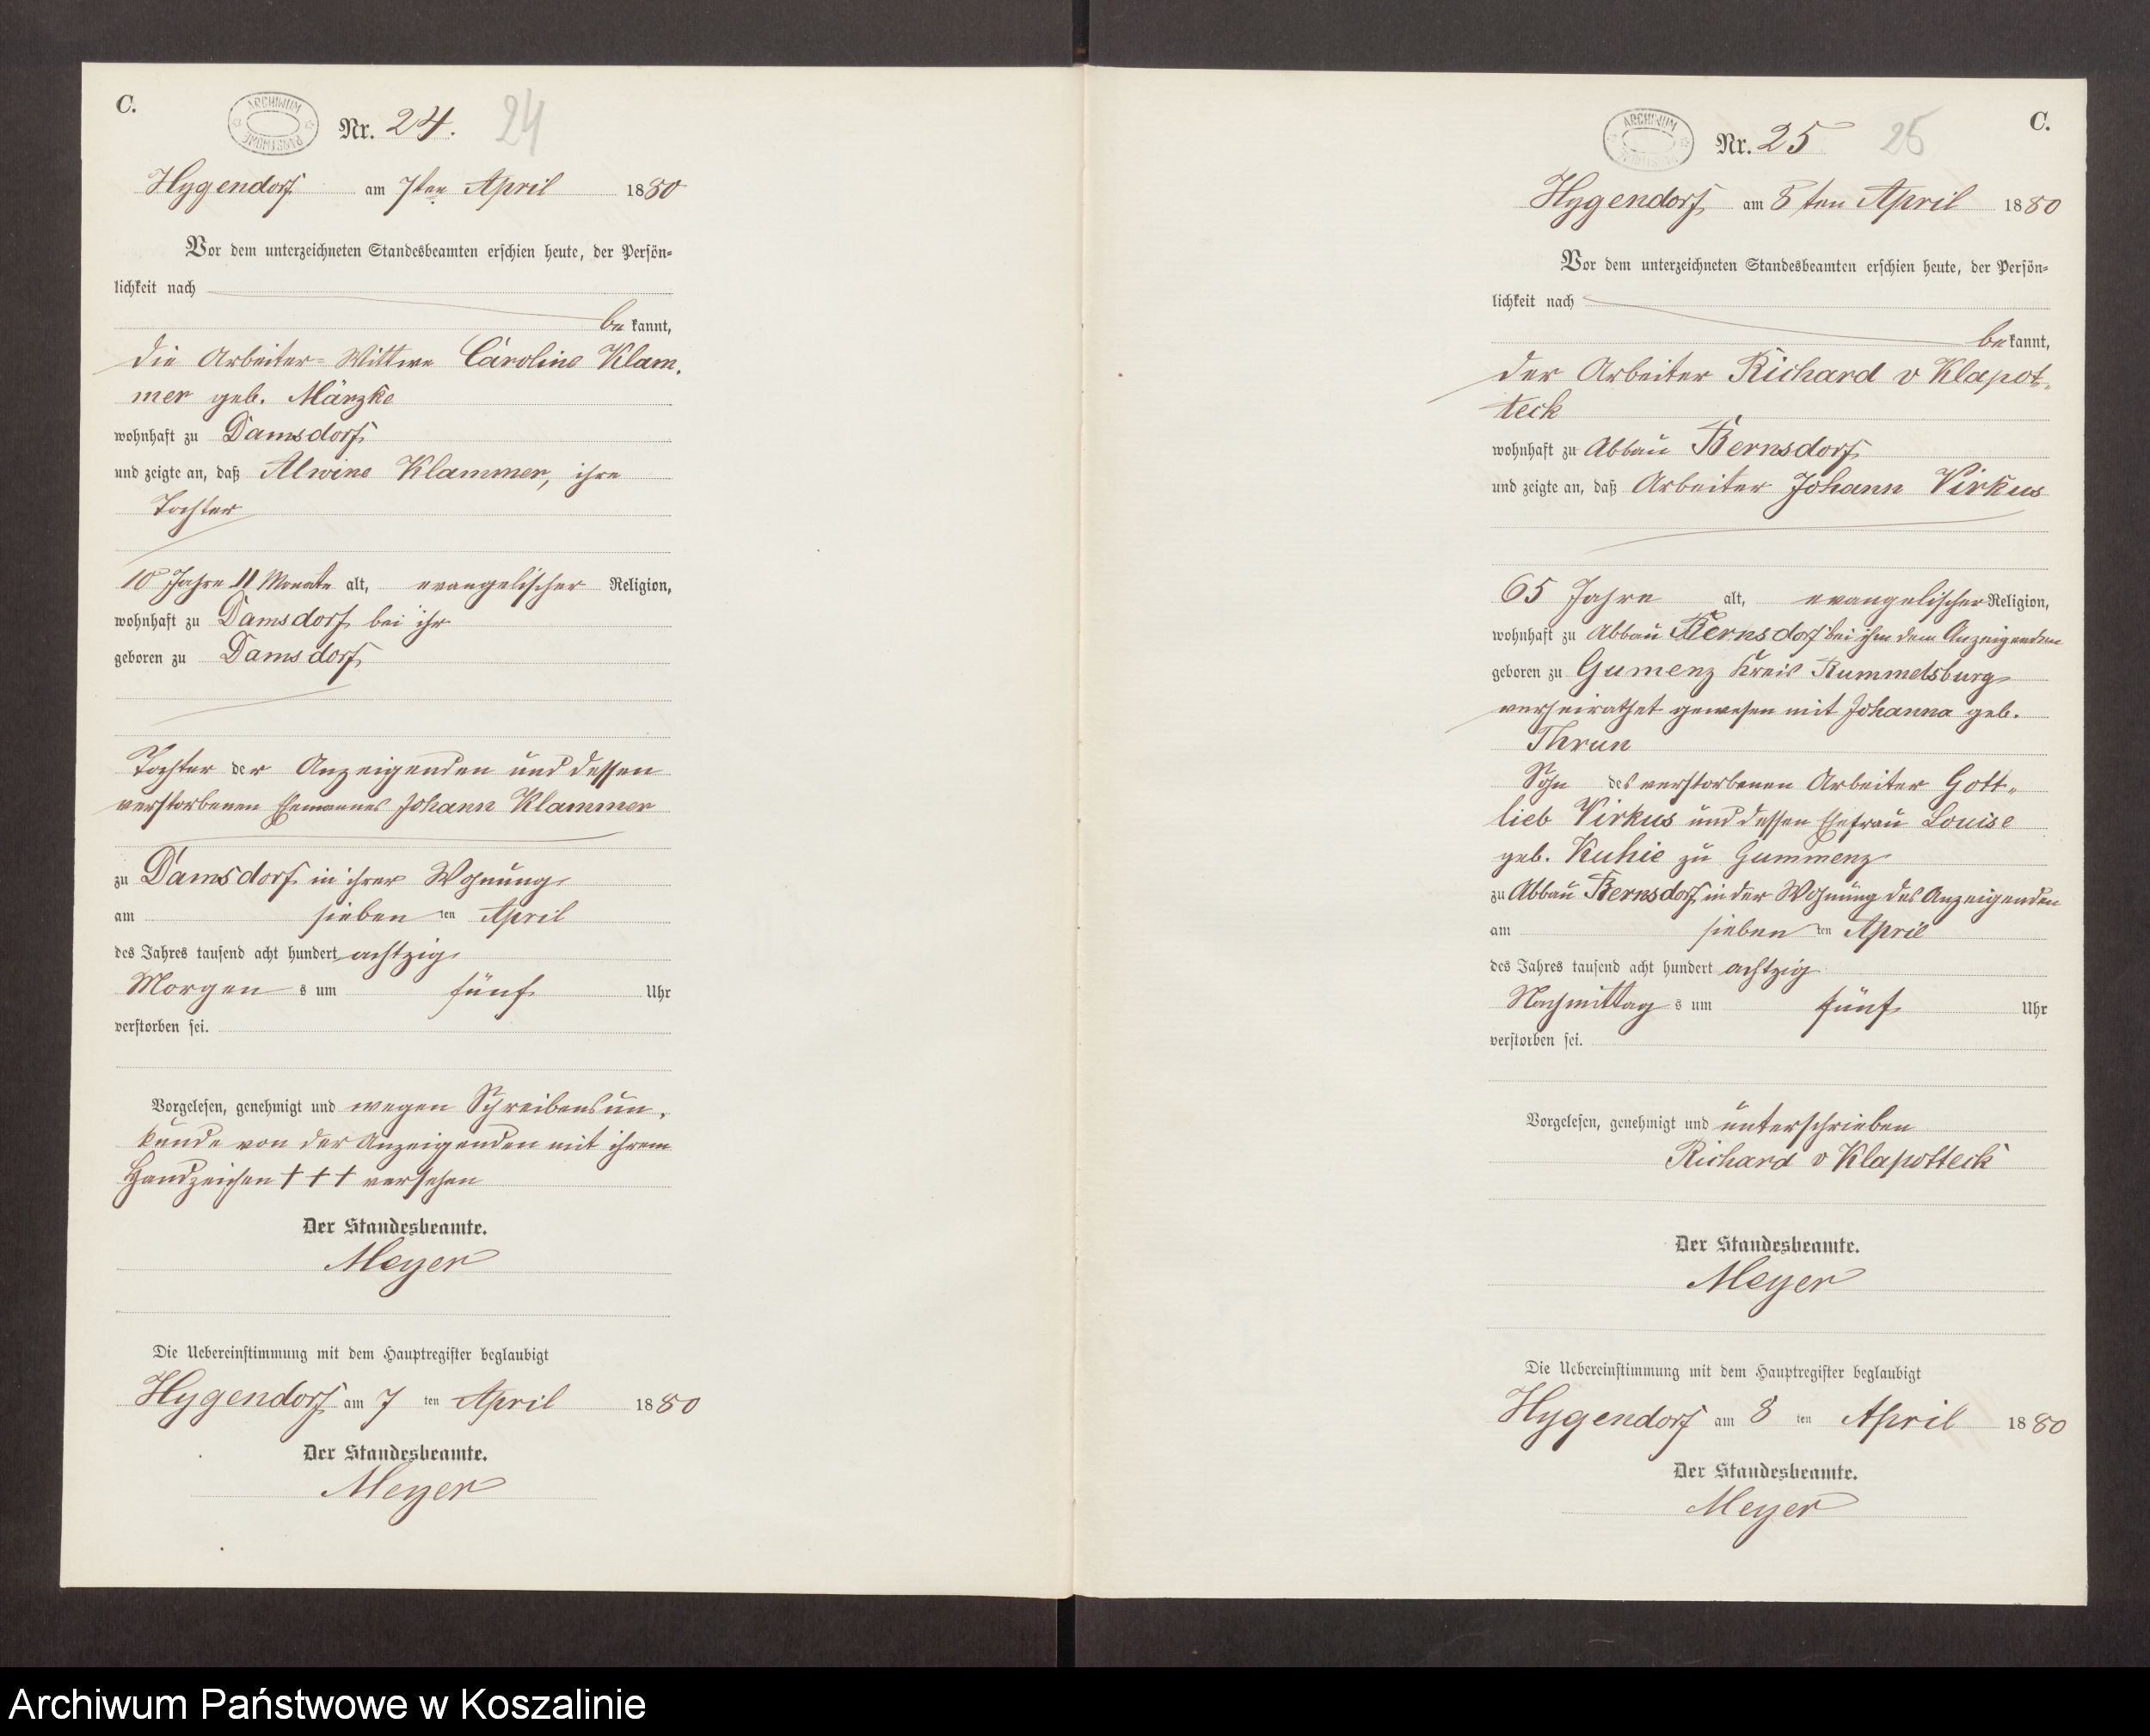 C.
ARCHIWUM PAŃSTWOWE
Nr. 24. 24
Hygendorf am 7ten April 1880
Vor dem unterzeichneten Standesbeamten erschien heute, der Persön-
lichkeit nach
be kannt,
die Arbeiter-Wittwe Caroline Klam-
mer geb. Märzke
wohnhaft zu Damsdorf
und zeigte an, daß Alwine Klammer, ihre
Tochter
10 Jahre 11 Monate alt, evangelischer Religion,
wohnhaft zu Damsdorf bei ihr
geboren zu Damsdorf
Tochter der Anzeigenden und dessen
verstorbenen Ehemannes Johann Klammer
zu Damsdorf in ihrer Wohnung
am sieben ten April
des Jahres tausend acht hundert achtzig
Morgen s um fünf Uhr
verstorben sei.
Vorgelesen, genehmigt und wegen Schreibensun-
kunde von der Anzeigenden mit ihrem
Handzeichen +++ versehen
Der Standesbeamte.
Meyer
Die Uebereinstimmung mit dem Hauptregister beglaubigt
Hygendorf am 7 ten April 1880
Der Standesbeamte.
Meyer
C.
ARCHIWUM PAŃSTWOWE
Nr. 25 25
Hygendorf am 8ten April 1880
Vor dem unterzeichneten Standesbeamten erschien heute, der Persön-
lichkeit nach
be kannt,
der Arbeiter Richard v Klapot-
teck
wohnhaft zu Abbau Bernsdorf
und zeigte an, daß Arbeiter Johann Virkus
65 Jahre alt, evangelischer Religion,
wohnhaft zu Abbau Bernsdorf bei ihm dem Anzeigenden
geboren zu Gumenz Kreis Rummelsburg
verheirathet gewesen mit Johanna geb.
Thrun
Sohn des verstorbenen Arbeiter Gott-
lieb Virkus und dessen Ehefrau Louise
geb. Kuhie zu Gummenz
zu Abbau Bernsdorf in der Wohnung des Anzeigenden
am sieben ten April
des Jahres tausend acht hundert achtzig
Nachmittag s um fünf Uhr
verstorben sei.
Vorgelesen, genehmigt und unterschrieben
Richard v Klapotteck
Der Standesbeamte.
Meyer
Die Uebereinstimmung mit dem Hauptregister beglaubigt
Hygendorf am 8 ten April 1880
Der Standesbeamte.
Meyer
Archiwum Państwowe w Koszalinie